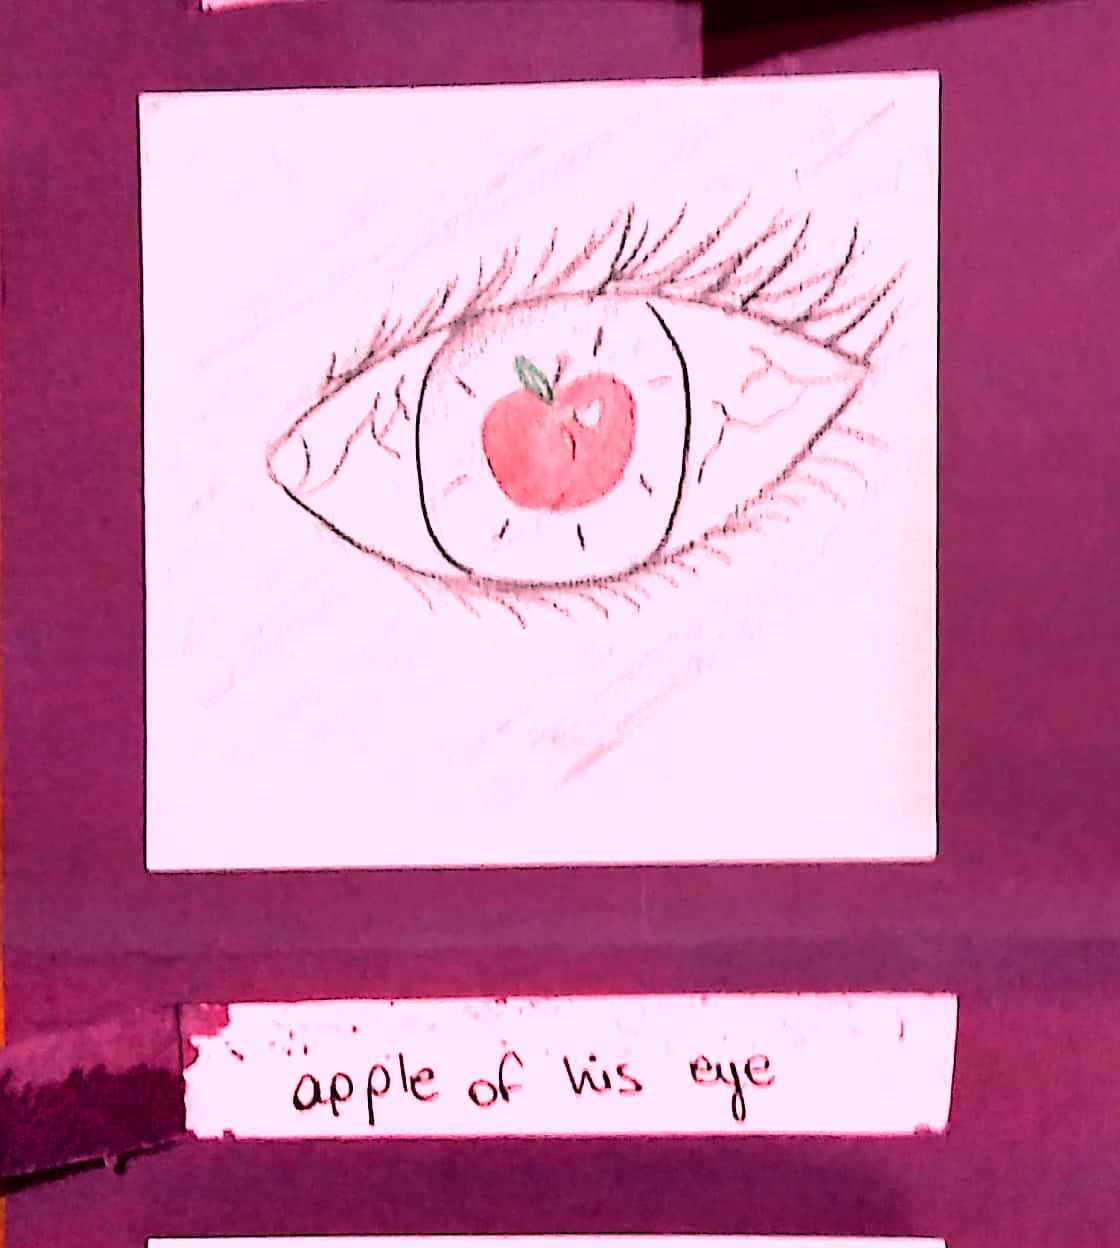 apple of his eye